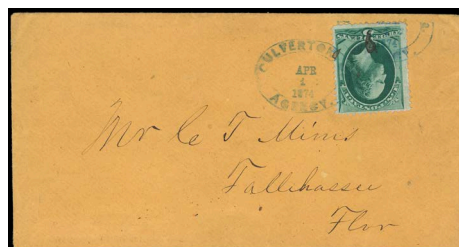 CULVERTON
APR
1
1874
AGENCY.
Mr C T Mims
Tallihassee
Flor